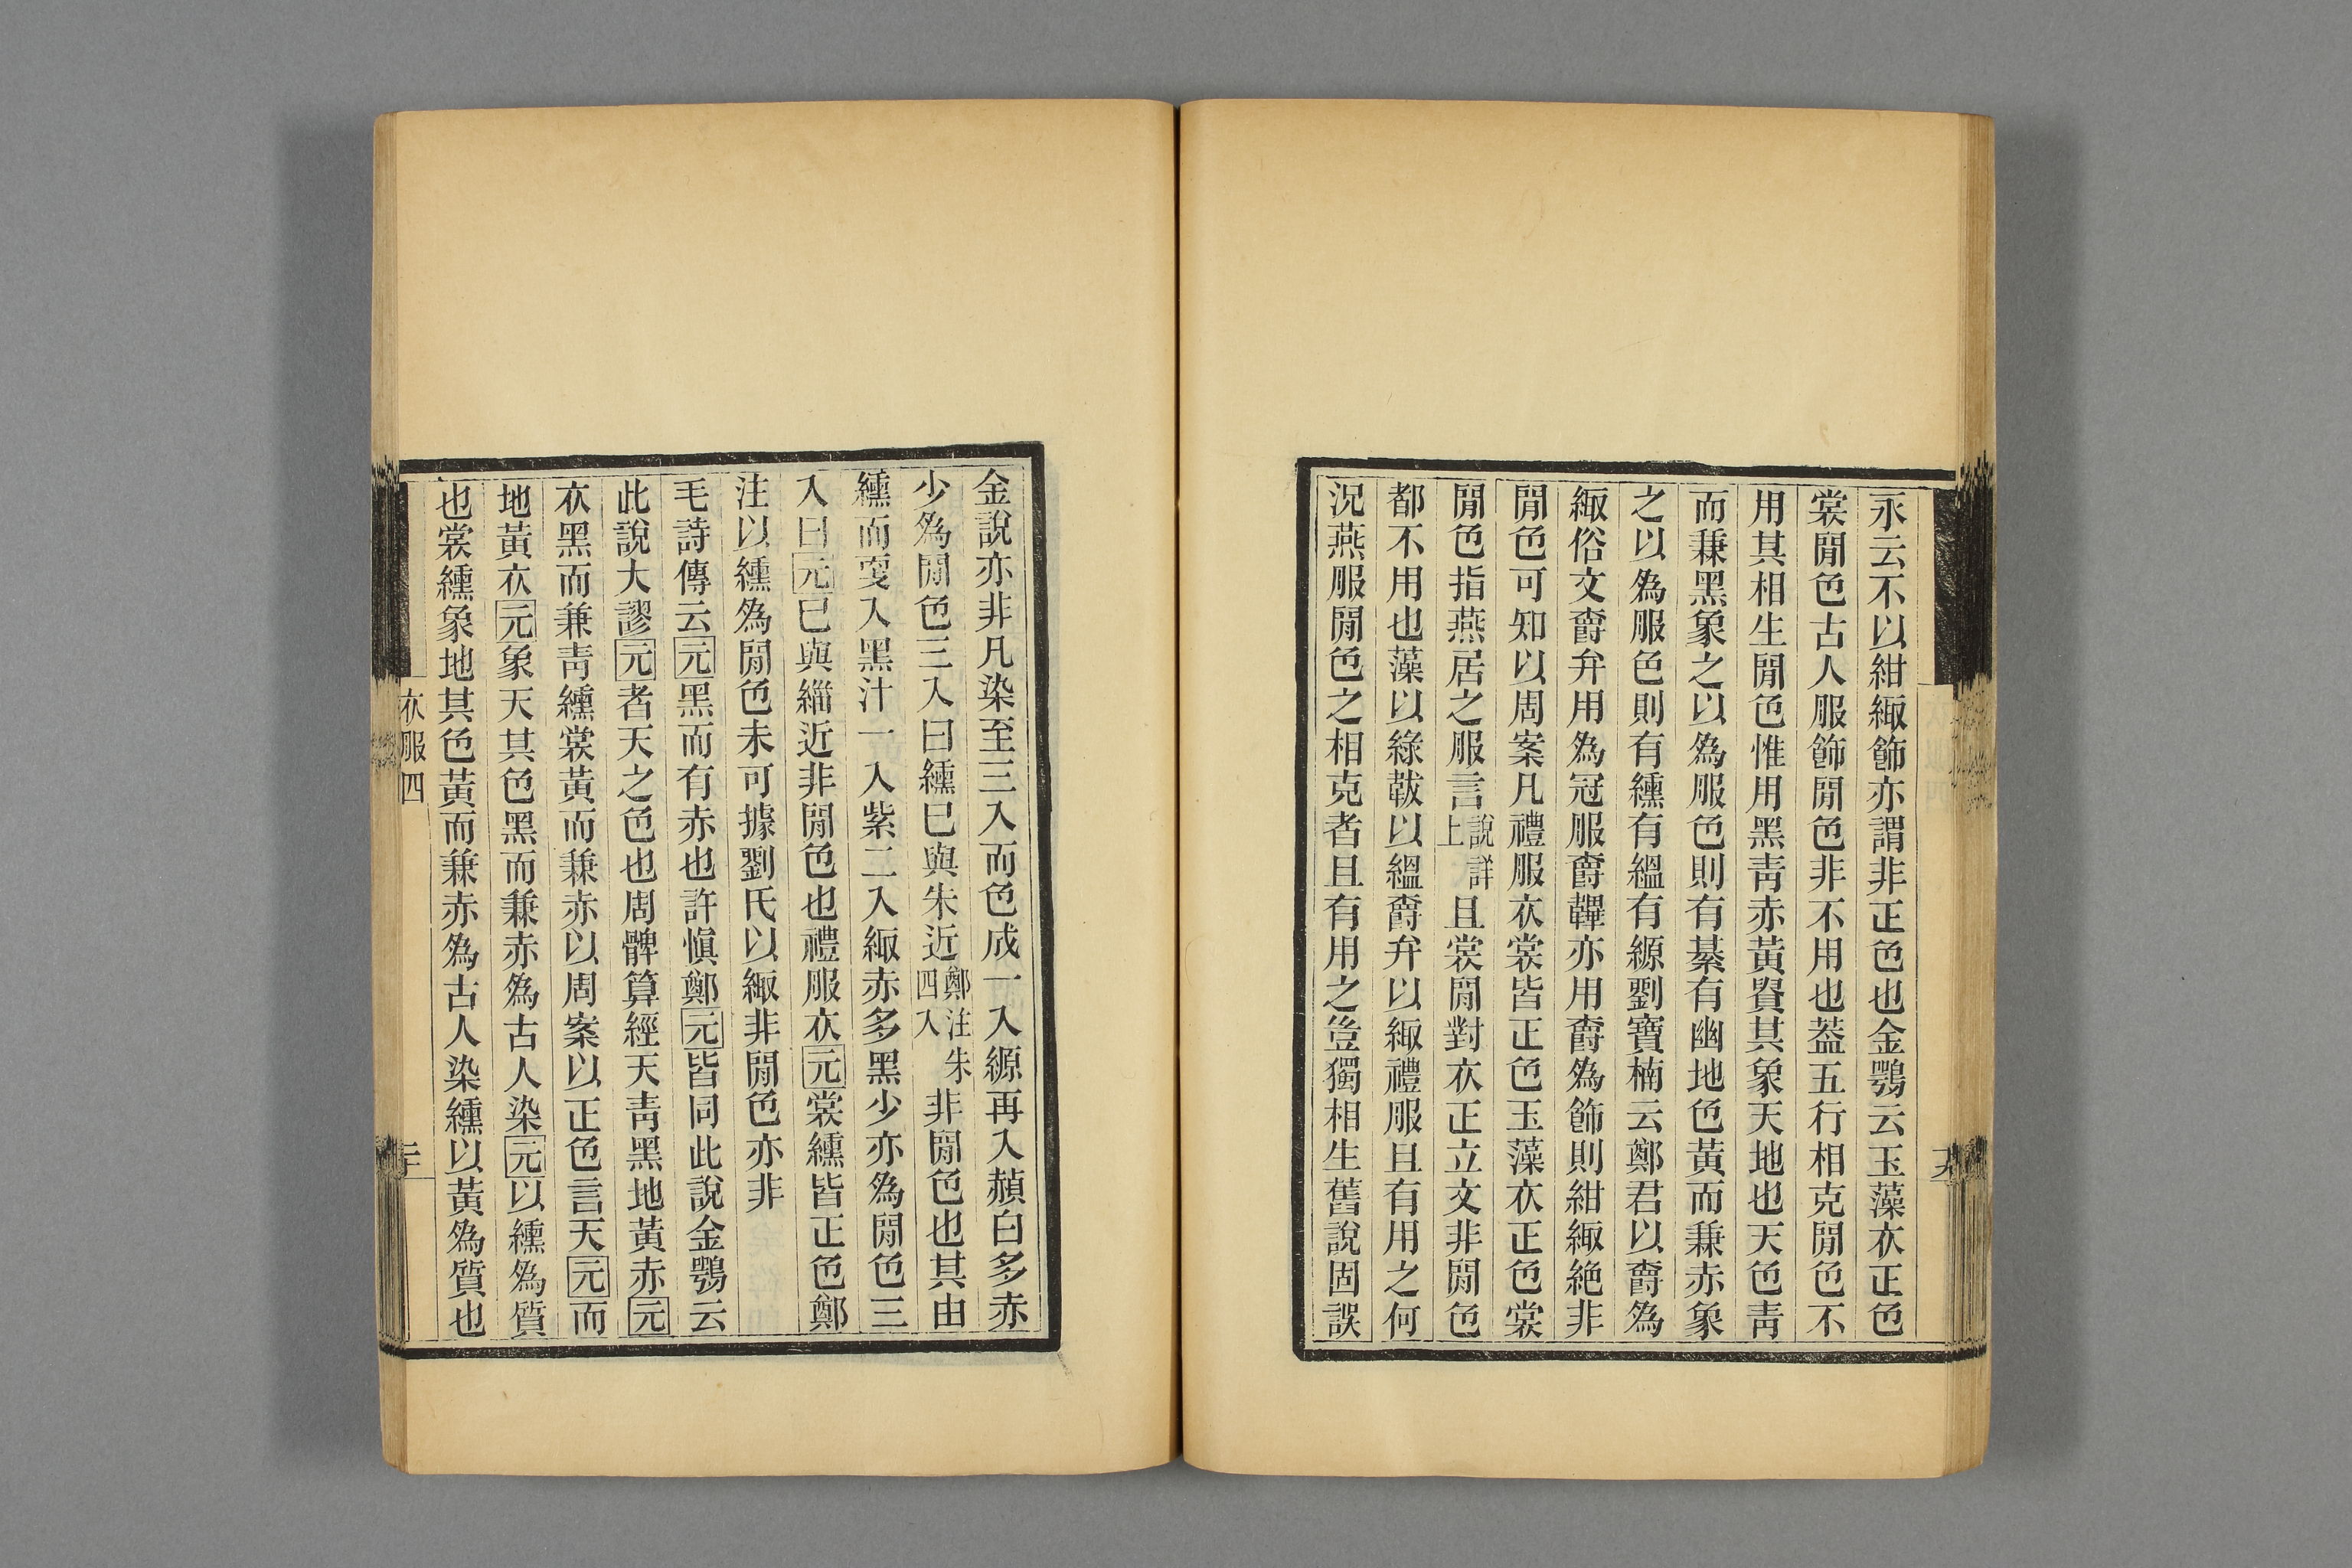 永云不以紺緅飾亦謂非正色也金鶚云玉藻衣正色
裳閒色古人服飾閒色非不用也葢五行相克閒色不
用其相生閒色惟用黑靑赤黃㒹其象天地也天色靑
而兼黑象之以爲服色則有綦有幽地色黃而兼赤象
之以爲服色則有纁有縕有縓劉寶楠云鄭君以𣝣爲
緅俗文𣝣弁用爲冠服𣝣韠亦用𣝣爲飾則紺緅絶非
閒色可知以周案凡禮服衣裳皆正色玉藻衣正色裳
閒色指燕居之服言說詳上且裳閒對衣正立文非閒色
都不用也藻以綠韍以縕𣝣弁以緅禮服且有用之何
況燕服閒色之相克者且有用之豈獨相生舊說固誤
金說亦非凡染至三入而色成一入縓再入赬白多赤
少爲閒色三入曰纁巳與朱近鄭注朱四入非閒色也其由
纁而㪅入黑汁一入紫二入緅赤多黑少亦爲閒色三
入曰元巳與緇近非閒色也禮服衣元裳纁皆正色鄭
注以纁爲閒色未可據劉氏以緅非閒色亦非
毛詩傳云元黑而有赤也許愼鄭元皆同此說金鶚云
此說大謬元者天之色也周髀算經天靑黑地黃赤元
衣黑而兼靑纁裳黃而兼赤以周案以正色言天元而
地黃衣元象天其色黑而兼赤爲古人染元以纁爲質
也裳纁象地其色黃而兼赤爲古人染纁以黃爲質也
衣服四